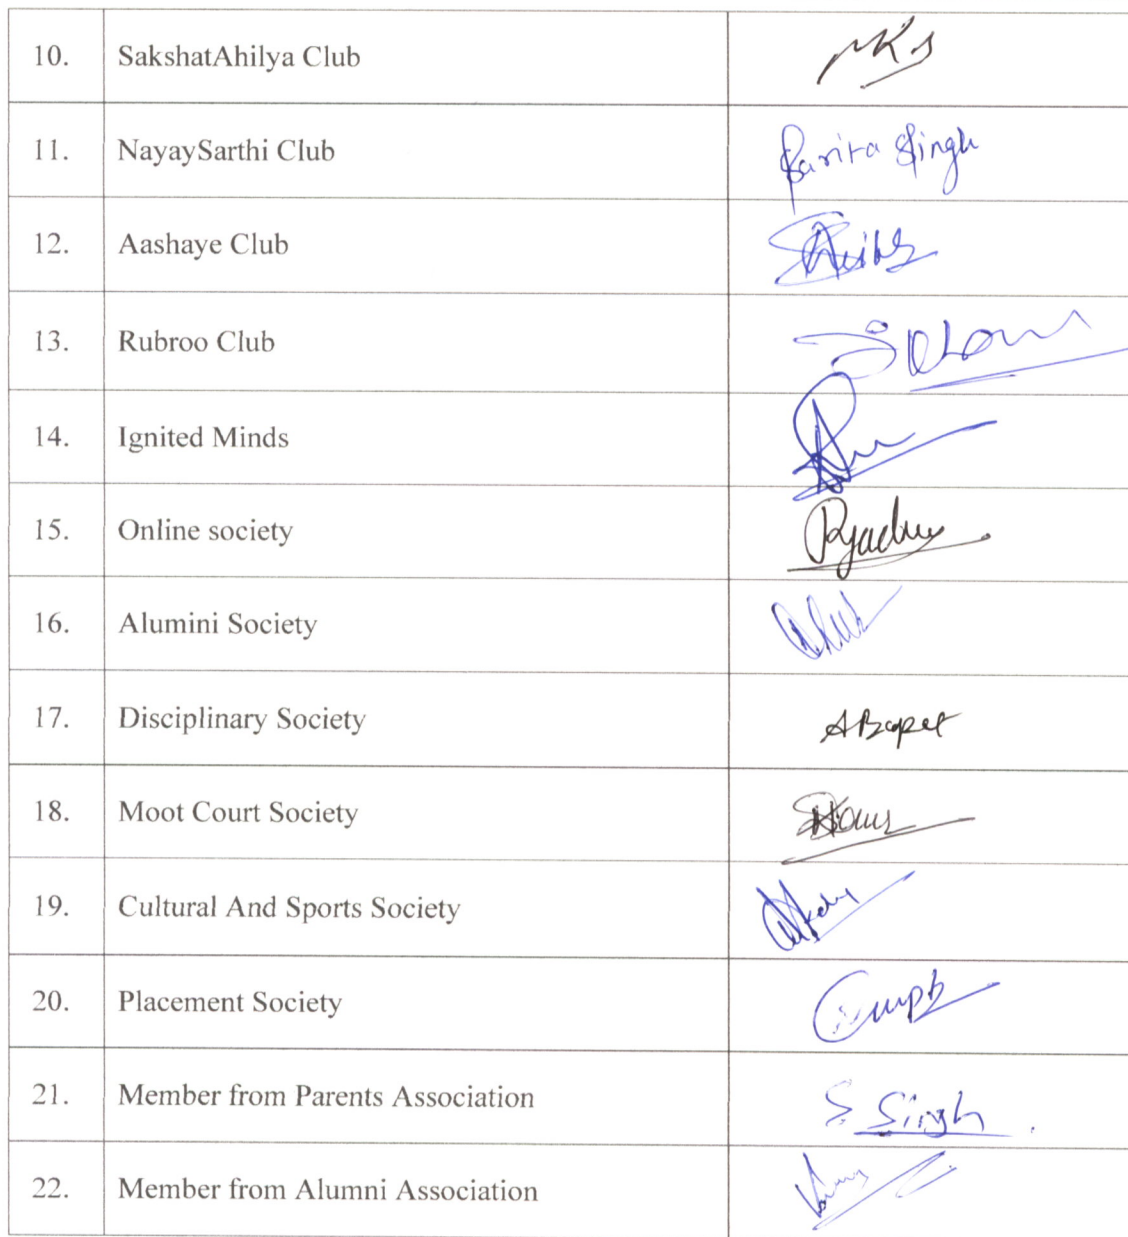 10. SakshatAhilya Club
11. NayaySarthi Club Sarita Singh
12. Aashaye Club
13. Rubroo Club
14. Ignited Minds
15. Online society
16. Alumini Society
17. Disciplinary Society ABapat
18. Moot Court Society
19. Cultural And Sports Society
20. Placement Society
21. Member from Parents Association S. Singh
22. Member from Alumni Association